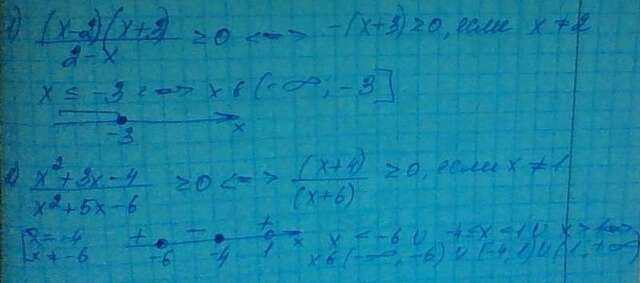 1) (x-2)(x+3) / 2-x ≥ 0 <=> -(x+3) ≥ 0, если x ≠ 2
x ≤ -3 <=> x ∈ (-∞; -3]
-3 x
x²+3x-4 / x²+5x-6 ≥ 0 <=> (x+4) / (x+6) ≥ 0, если x ≠ 1
[x = -4
x ≠ -6
+ - +
-6 -4 1 x
x < -6 ∪ -4 ≤ x < 1 ∪ x > 1 <=>
x ∈ (-∞, -6) ∪ [-4, 1) ∪ (1, +∞)